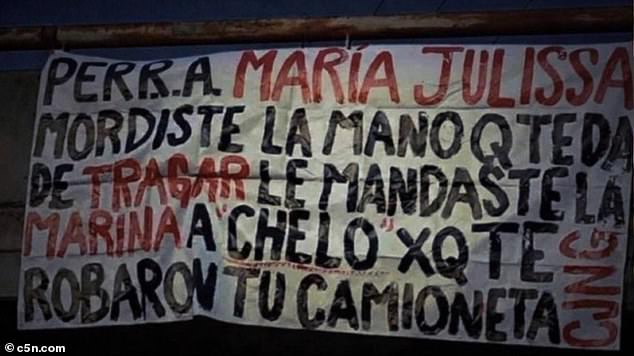 PERR.A. MARÍA JULISSA
MORDISTE LA MANO Q TE DA
DE TRAGAR LE MANDASTE LA
MARINA A "CHELO" XQ TE
ROBARON TU CAMIONETA
CJNG
© c5n.com